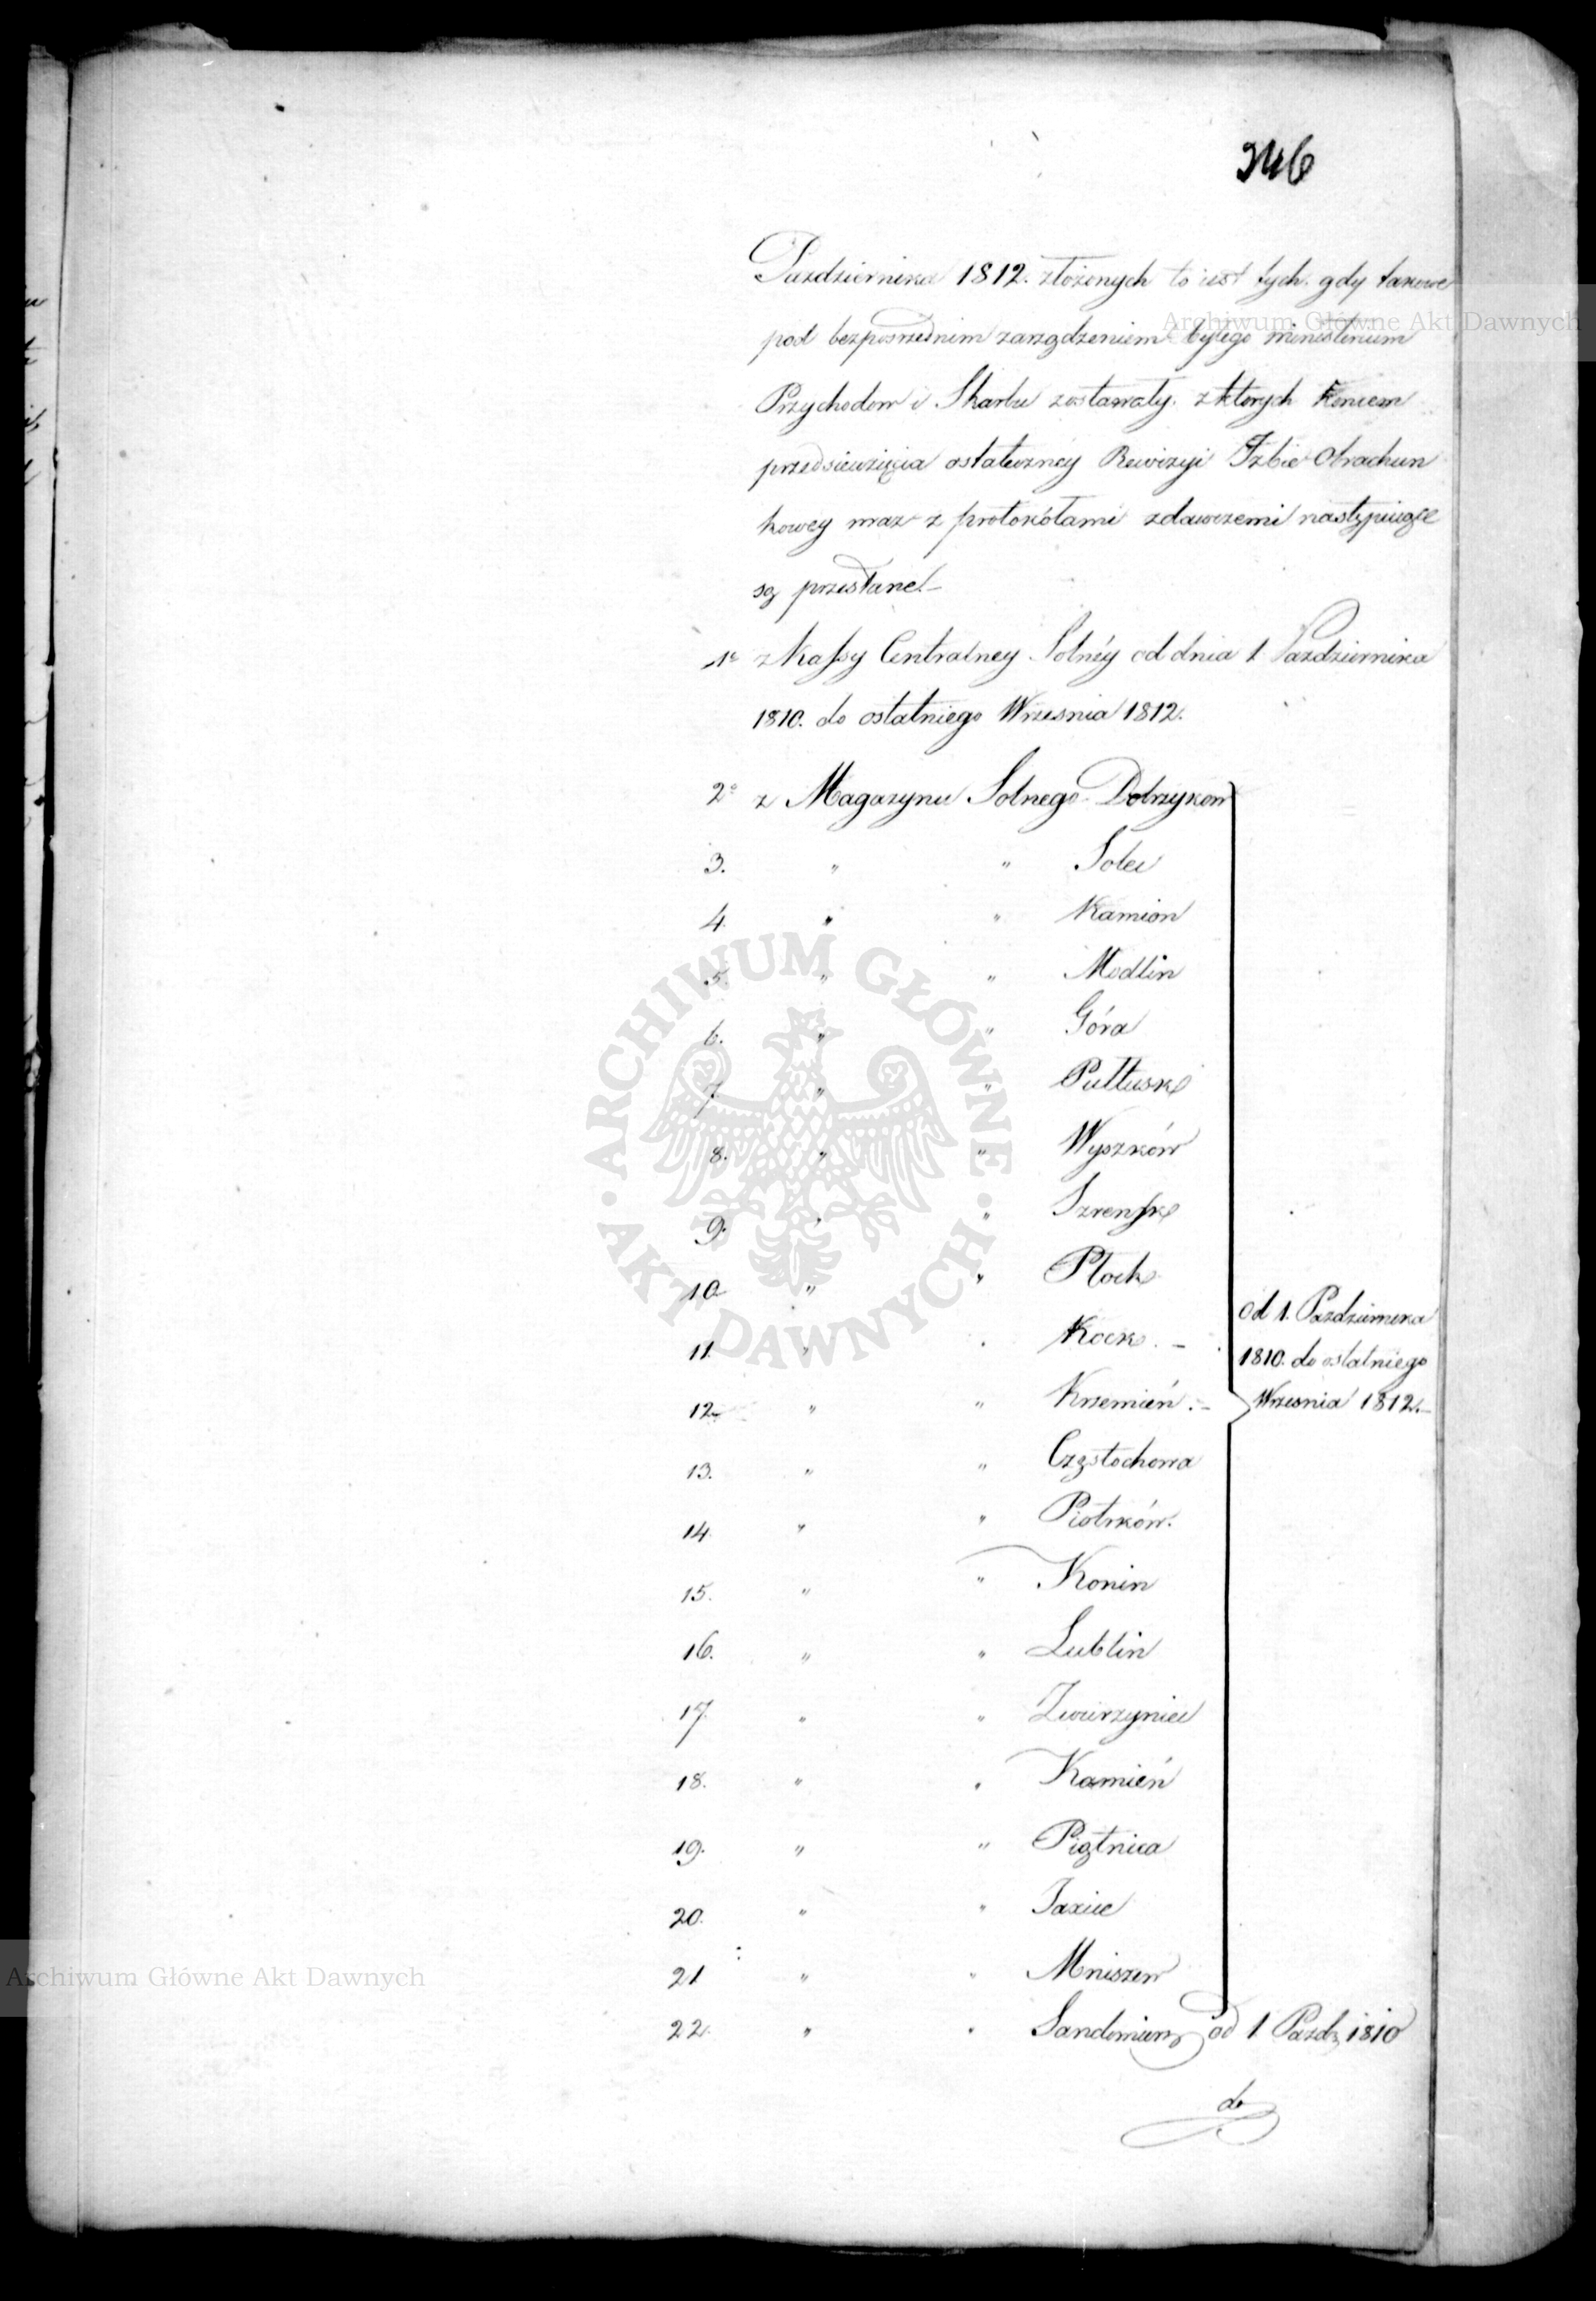 346
Pazdziernika 1812. złożonych to iest tych. gdy takowe
pod bezposrednim zarządzeniem byłego ministerium
Przychodow i Skarbu zostawały. z ktorych koncem
przedsiewzięcia ostateczney Rewizyi Izbie Obrachun
kowey wraz z protokółami zdawczemi następuiące
są przesłane.-
1º z Kassy Centralney Solnéy od dnia 1 Pazdziernika
1810. do ostatniego Wrzesnia 1812.
2º z Magazynu Solnego Dobrzykow
3. " " Solec
4. " " Kamion
5. " " Modlin
6. " " Góra
7. " " Pułtusk
8. " " Wyszków
9. " " Szrensk
10. " " Płock
11. " " Kock. -
12. " " Krzemień. -
od 1. Pazdziernika
1810. do ostatniego
Wrzesnia 1812.-
13. " " Częstochowa
14. " " Piotrków.
15. " " Konin
16. " " Lublin
17. " " Zwierzyniec
18. " " Kamień
19. " " Piątnica
20. " "
21. " " Mniszew
22. " " Sandomierz od 1 Pazdz. 1810
do
Archiwum Główne Akt Dawnych
Archiwum Główne Akt Dawnych
· ARCHIWUM GŁÓWNE · AKT DAWNYCH